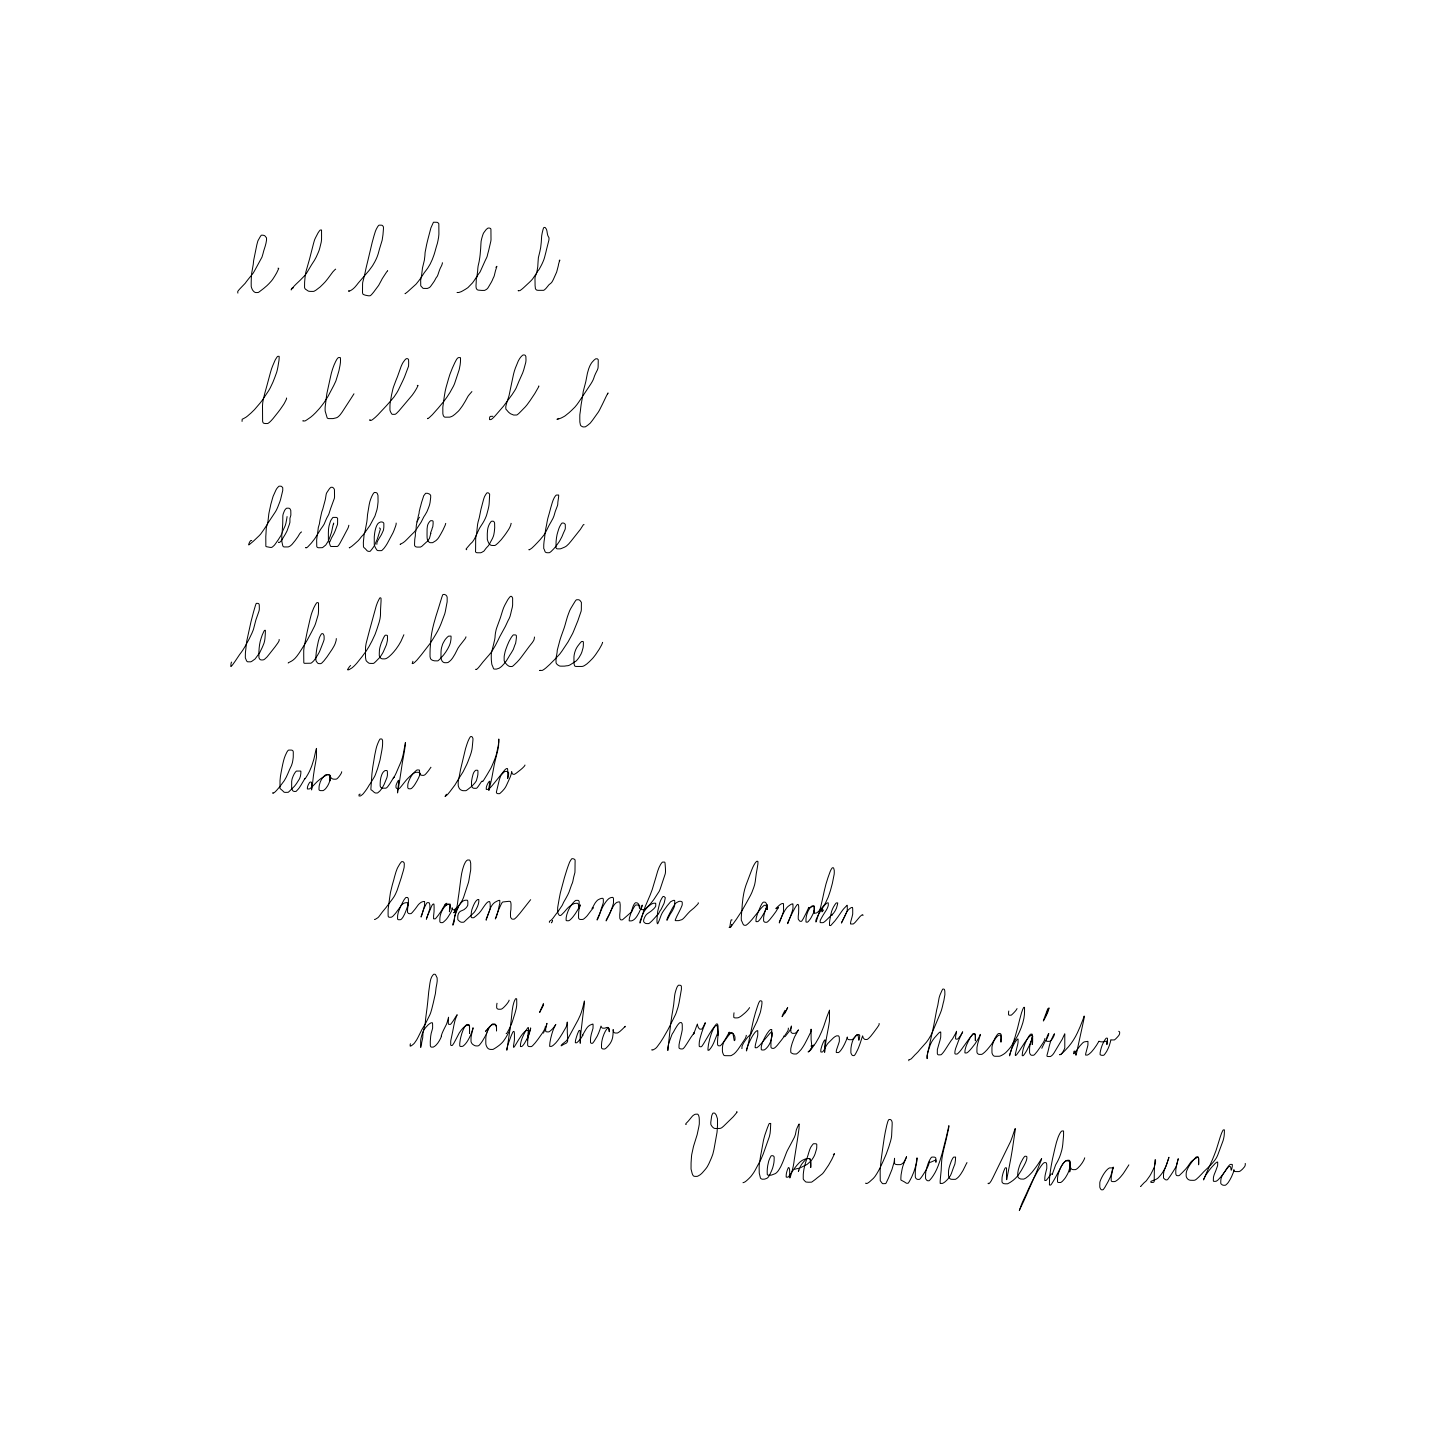 l l l l l l
l l l l l l
le le le le le le
le le le le le le
leto leto leto
lamokem lamoken lamoken
hračhárstvo hračhárstvo hračhárstvo
V lete bude teplo a sucho